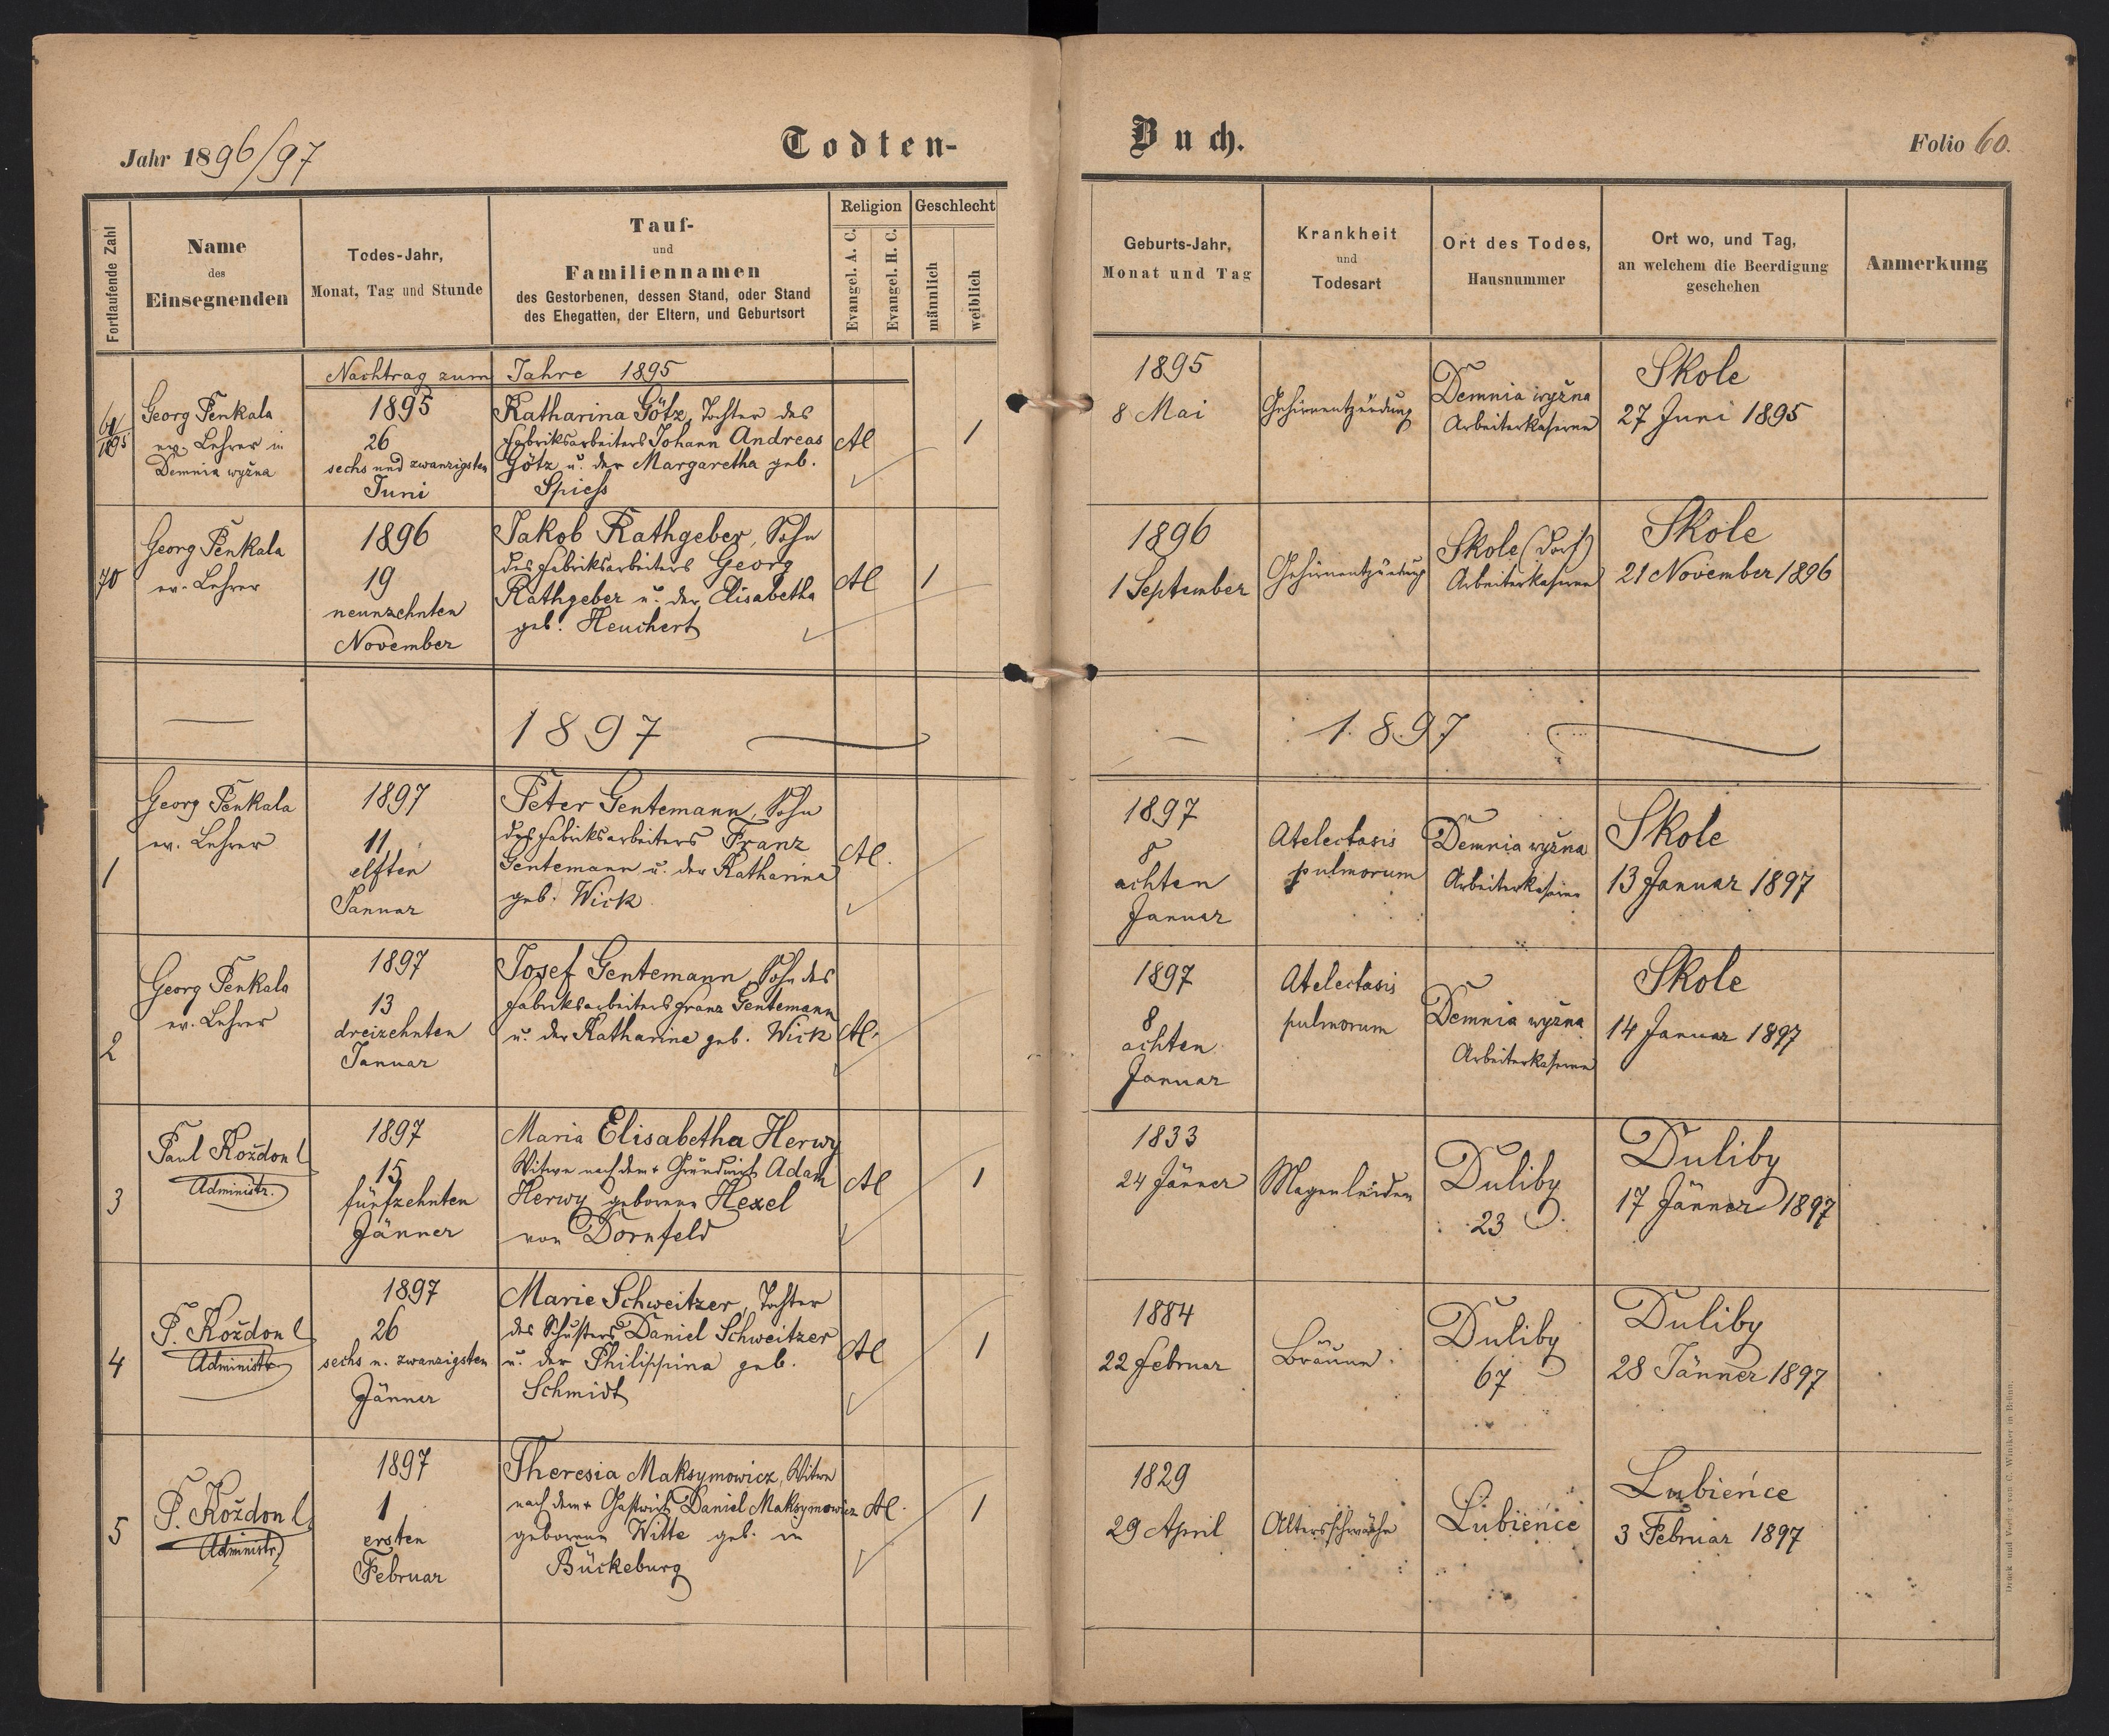 Jahr 1896/97
Todten-
Buch.
Folio 60.
Fortlaufende Zahl
Name
des
Einsegnenden
Todes-Jahr,
Monat, Tag und Stunde
Tauf-
und
Familiennamen
des Gestorbenen, dessen Stand, oder Stand
des Ehegatten, der Eltern, und Geburtsort
Religion
Evangel. A. C.
Evangel. H. C.
Geschlecht
männlich
weiblich
Geburts-Jahr,
Monat und Tag
Krankheit
und
Todesart
Ort des Todes,
Hausnummer
Ort wo, und Tag,
an welchem die Beerdigung
geschehen
Anmerkung
Nachtrag zum Jahre 1895
Georg Penkala
ev. Lehrer in
Demnia wyżna
1895
26
sechs und zwanzigsten
Juni
Katharina Götz, Tochter des
Fabriksarbeiters Johann Andreas
Götz u. der Margaretha geb.
Spiess
A
1
1895
8 Mai
Gehirnentzündung
Demnia wyżna
Arbeiterkaserne
Skole
27 Juni 1895
70
Georg Penkala
ev. Lehrer
1896
19
neunzehnten
November
Jakob Rathgeber, Sohn
des Fabriksarbeiters Georg
Rathgeber u. der Elisabetha
geb. Heuchert
A
1
1896
1 September
Gehirnentzündung
Skole (Dorf)
Arbeiterkaserne
Skole
21 November 1896
1897
1897
1
Georg Penkala
ev. Lehrer
1897
11
elften
Januar
Peter Gentemann, Sohn
des Fabriksarbeiters Franz
Gentemann u. der Katharina
geb. Wick
A
1897
8
achten
Januar
Atelectasis
pulmorum
Demnia wyżna
Arbeiterkaserne
Skole
13 Januar 1897
2
Georg Penkala
ev. Lehrer
1897
13
dreizehnten
Januar
Josef Gentemann, Sohn des
Fabriksarbeiters Franz Gentemann
u. der Katharina geb. Wick
A
1897
8
achten
Januar
Atelectasis
pulmorum
Demnia wyżna
Arbeiterkaserne
Skole
14 Januar 1897
3
Paul Kożdoń
Administr.
1897
15
fünfzehnten
Jänner
Maria Elisabetha Herwy
Witwe nach dem + Grundwirth Adam
Herwy geborene Hexel
von Dornfeld
A
1
1833
24 Jänner
Magenleiden
Duliby
23
Duliby
17 Jänner 1897
4
P. Kożdoń
Administr.
1897
26
sechs u. zwanzigsten
Jänner
Marie Schweitzer, Tochter
des Schusters Daniel Schweitzer
u. der Philippina geb.
Schmidt
A
1
1884
22 Februar
Bräune
Duliby
67
Duliby
28 Jänner 1897
5
P. Kożdoń
Administr.
1897
1
ersten
Februar
Theresia Maksymowicz, Witwe
nach dem + Gastwirth Daniel Maksymowicz
geborene Witte geb. in
Bückeburg
A
1
1829
29 April
Altersschwäche
Lubieńce
Lubieńce
3 Februar 1897
Druck und Verlag von C. Winiker in Brünn.